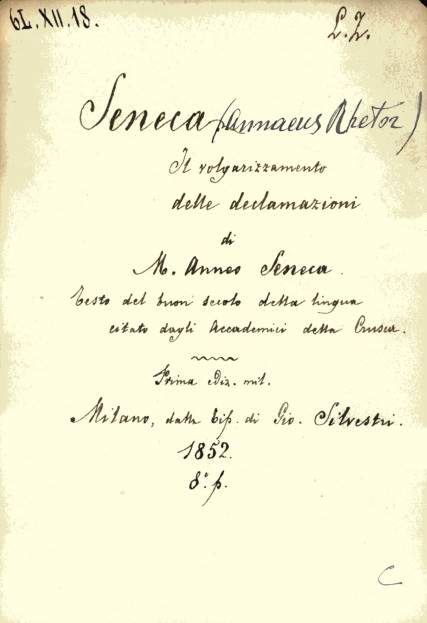 6L.XII.18.
L.Z.
Seneca (Annaeus Rhetor)
Il volgarizzamento
delle declamazioni
di
M. Anneo Seneca.
Testo del buon secolo della lingua
citato dagli Accademici della Crusca.
Prima ediz. mil.
Milano, dalla Tip. di Gio. Silvestri.
1852.
8.° p.
C